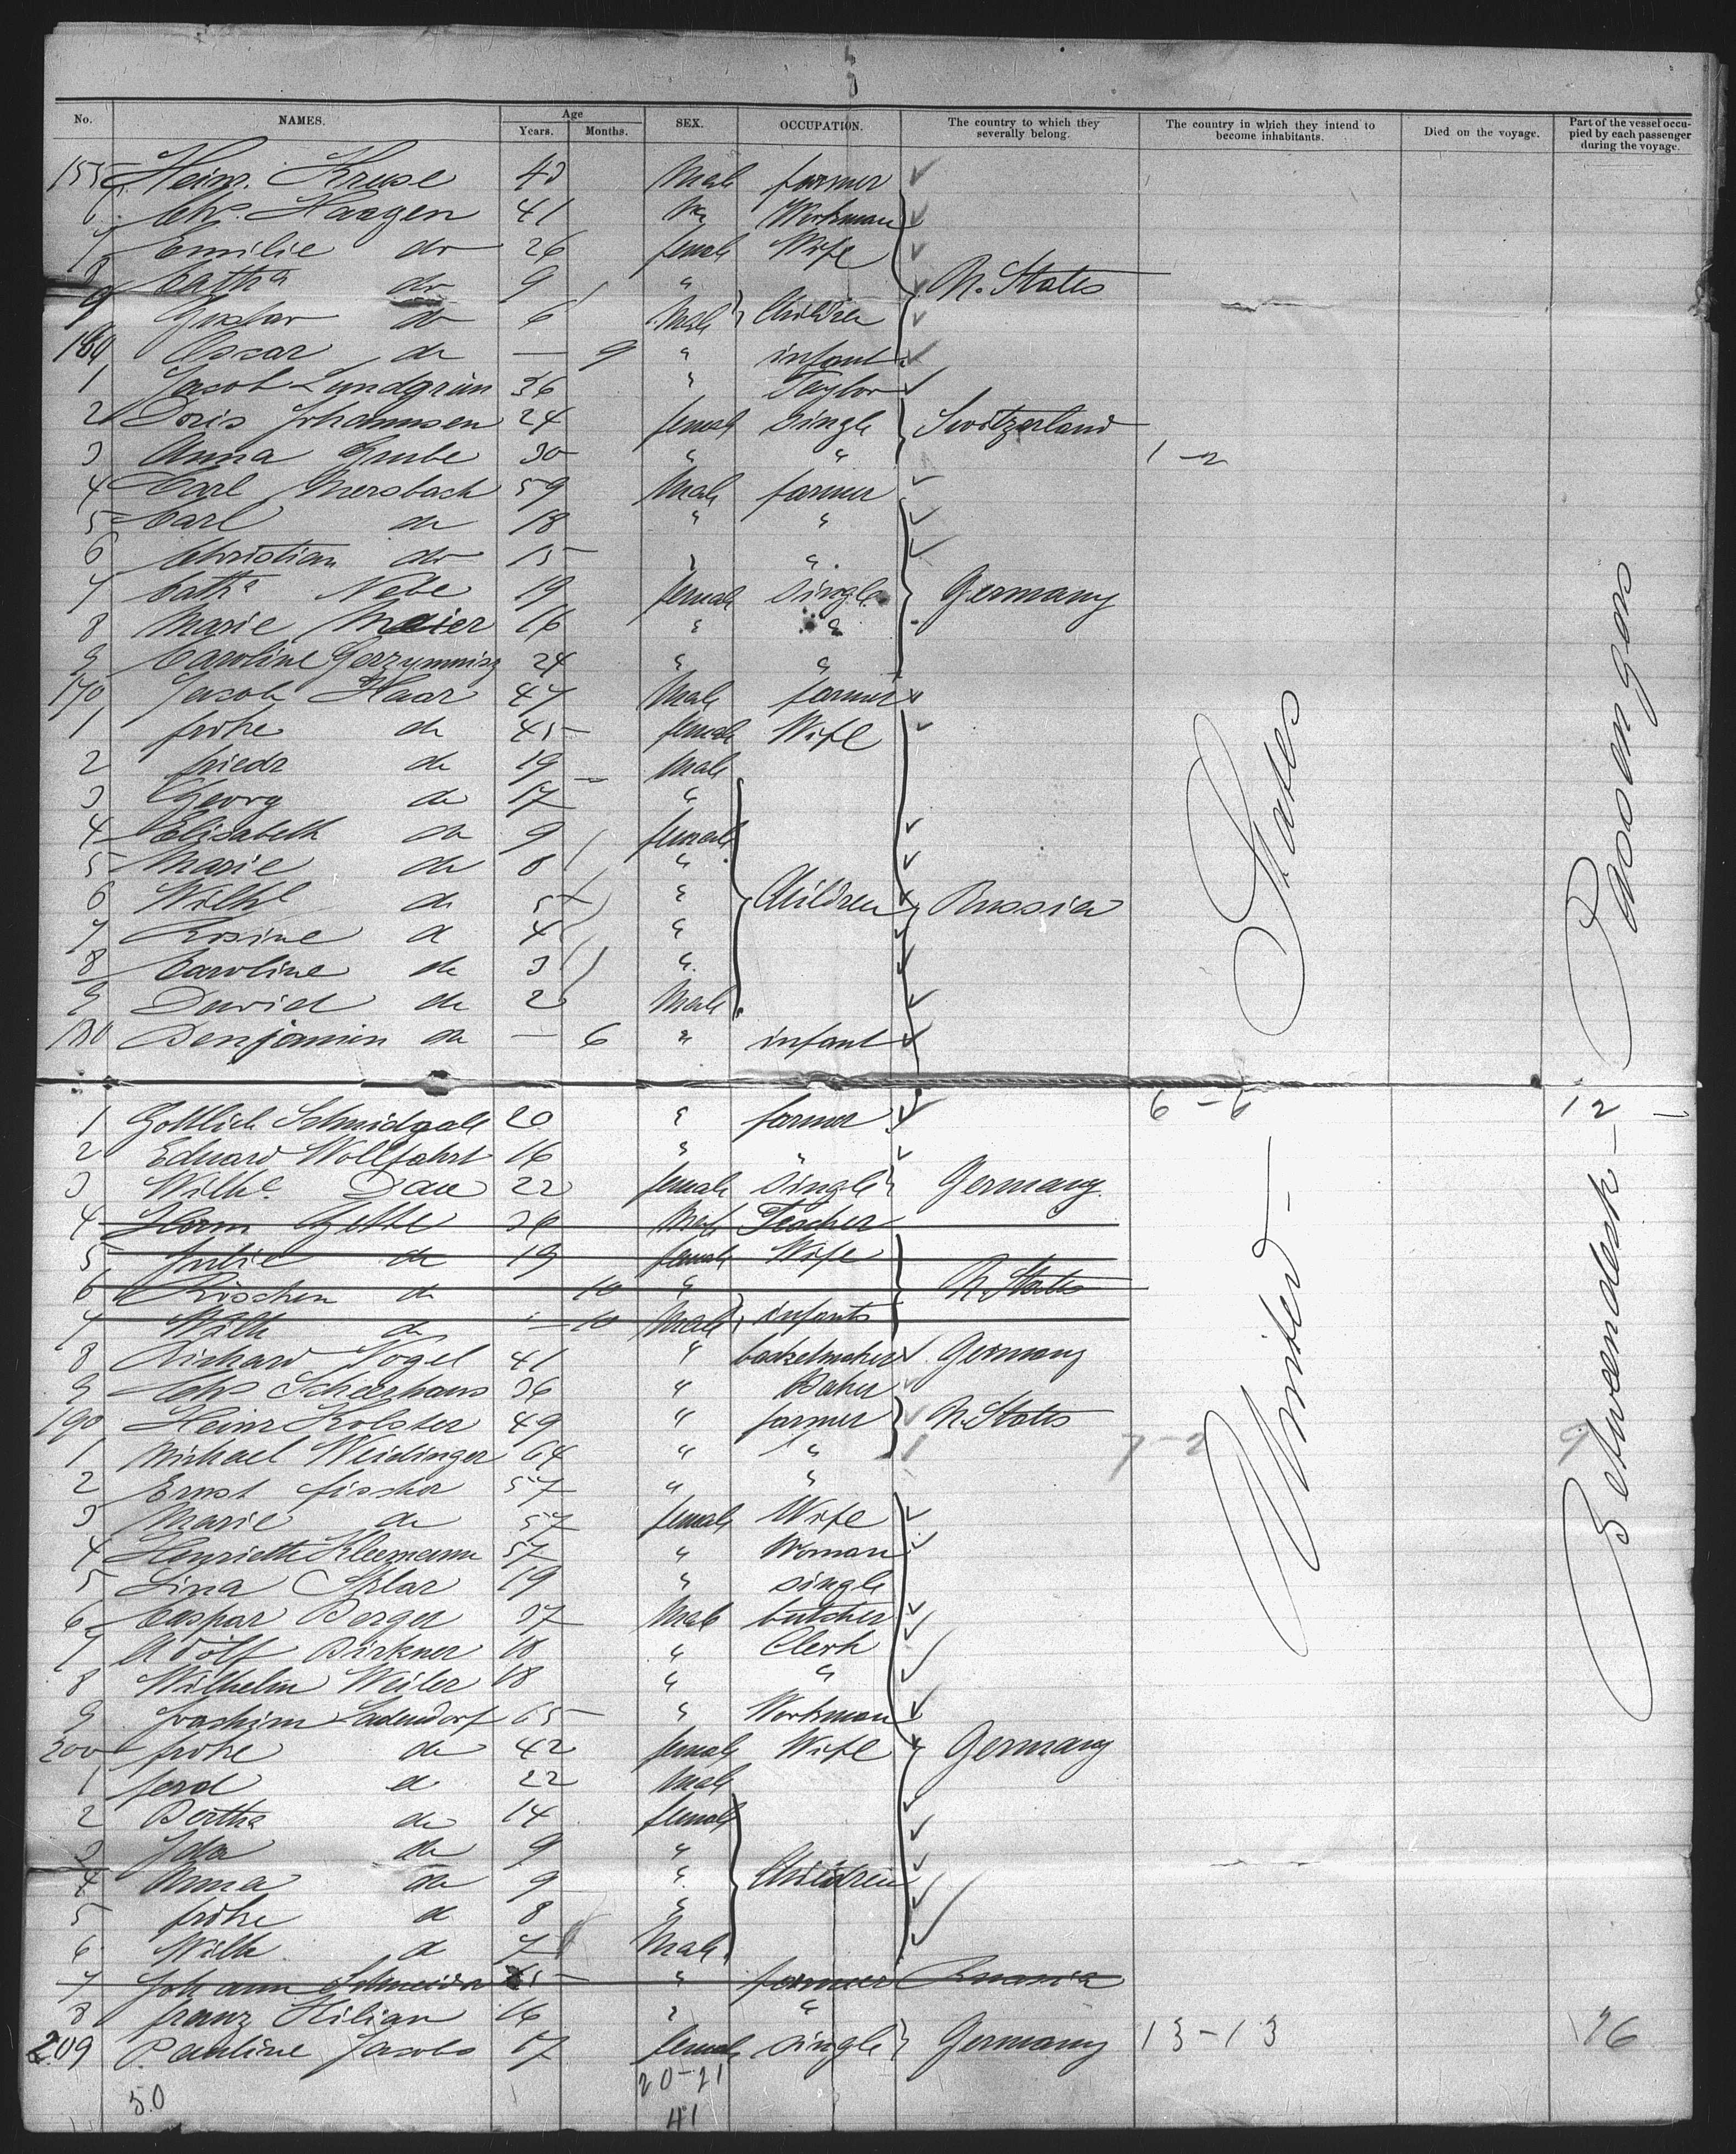 No. NAMES. Age Years. Months. SEX. OCCUPATION. The country to which they severally belong. The country in which they intend to become inhabitants. Died on the voyage. Part of the vessel occupied by each passenger during the voyage.
155 Heinr. Kruse 43 Male farmer
6 Chr. Haagen 41 Workman
7 Emilie do 26 female Wife
8 Cath a do 9 " U. States
9 Gustav do 6 Male Children
160 Oscar do — 9 " infant
1 Jacob Lundgrün 36 " Taylor
2 Doris Johannsen 24 female Single Switzerland
3 Anna Grube 30 " " 1-2
4 Carl Mersbach 59 Male farmer
5 Carl do 18 " "
6 Christian do 15 " "
7 Cath a Nebe 19 female Single Germany
8 Marie Meier 16 " "
9 Caroline 24 " "
170 Jacob Haar 47 Male farmer
1 frdke do 45 female Wife
2 friedr do 19 Male
3 Georg do 17 "
4 Elisabeth do 9 female
5 Marie do 8 "
6 Wilhe do 5 " Children Russia
7 Rosine do 4 "
8 Caroline do 3 "
9 David do 2 Male
180 Benjamin do — 6 " infant
1 Gottlieb Schmidgall 20 " farmer 6-6 12
2 Eduard Wollfahrt 16 " "
3 Wilhe. Dau 22 female Single Germany.
4 Herm 36 Male Teacher
5 Julie do 19 female Wife
6 Röschen do 10 " U. States
7 Wilh do — 10 Male infants
8 Richard Vogel 41 " Germany
9 Chr Scheerhans 36 " Baker
190 Heinr Kolster 49 " farmer U. States
1 Michael Weidinger 64 " " 7-2 9
2 Ernst fischer 57 " "
3 Marie do 57 female Wife
4 Henriette Kleemann 57 " Woman
5 Lina Sklar 19 " single
6 Caspar Berger 37 Male butcher
7 Adolf Birkner 18 " Clerk
8 Wilhelm Weiler 18 " "
9 Joachim Ladendorf 65 " Workman
200 frdke do 42 female Wife Germany
1 ferd do 22 Male
2 Bertha do 14 female
3 Ida do 9 "
4 Anna do 9 " Children
5 frdke do 8 "
6 Wilh do 7 Male
7 Johann Schneider " farmer Russia
8 franz Kilian 16 " "
209 Pauline Jacobs 17 female single Germany 13-13 76
50 20-21
41
United States
Betweendeck Passengers